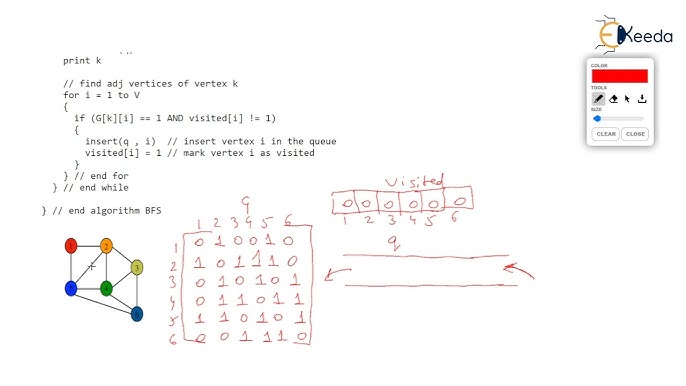 Keeda
print k
// find adj vertices of vertex k
for i = 1 to V
{
if (G[k][i] == 1 AND visited[i] != 1)
{
insert(q , i)  // insert vertex i in the queue
visited[i] = 1 // mark vertex i as visited
}
} // end for
} // end while
} // end algorithm BFS
COLOR
TOOLS
SIZE
CLEAR CLOSE
visited
0 0 0 0 0 0
1 2 3 4 5 6
q
G
1 2 3 4 5 6
1 0 1 0 0 1 0
2 1 0 1 1 1 0
3 0 1 0 1 0 1
4 0 1 1 0 1 1
5 1 1 0 1 0 1
6 0 0 1 1 1 0
1 2
3